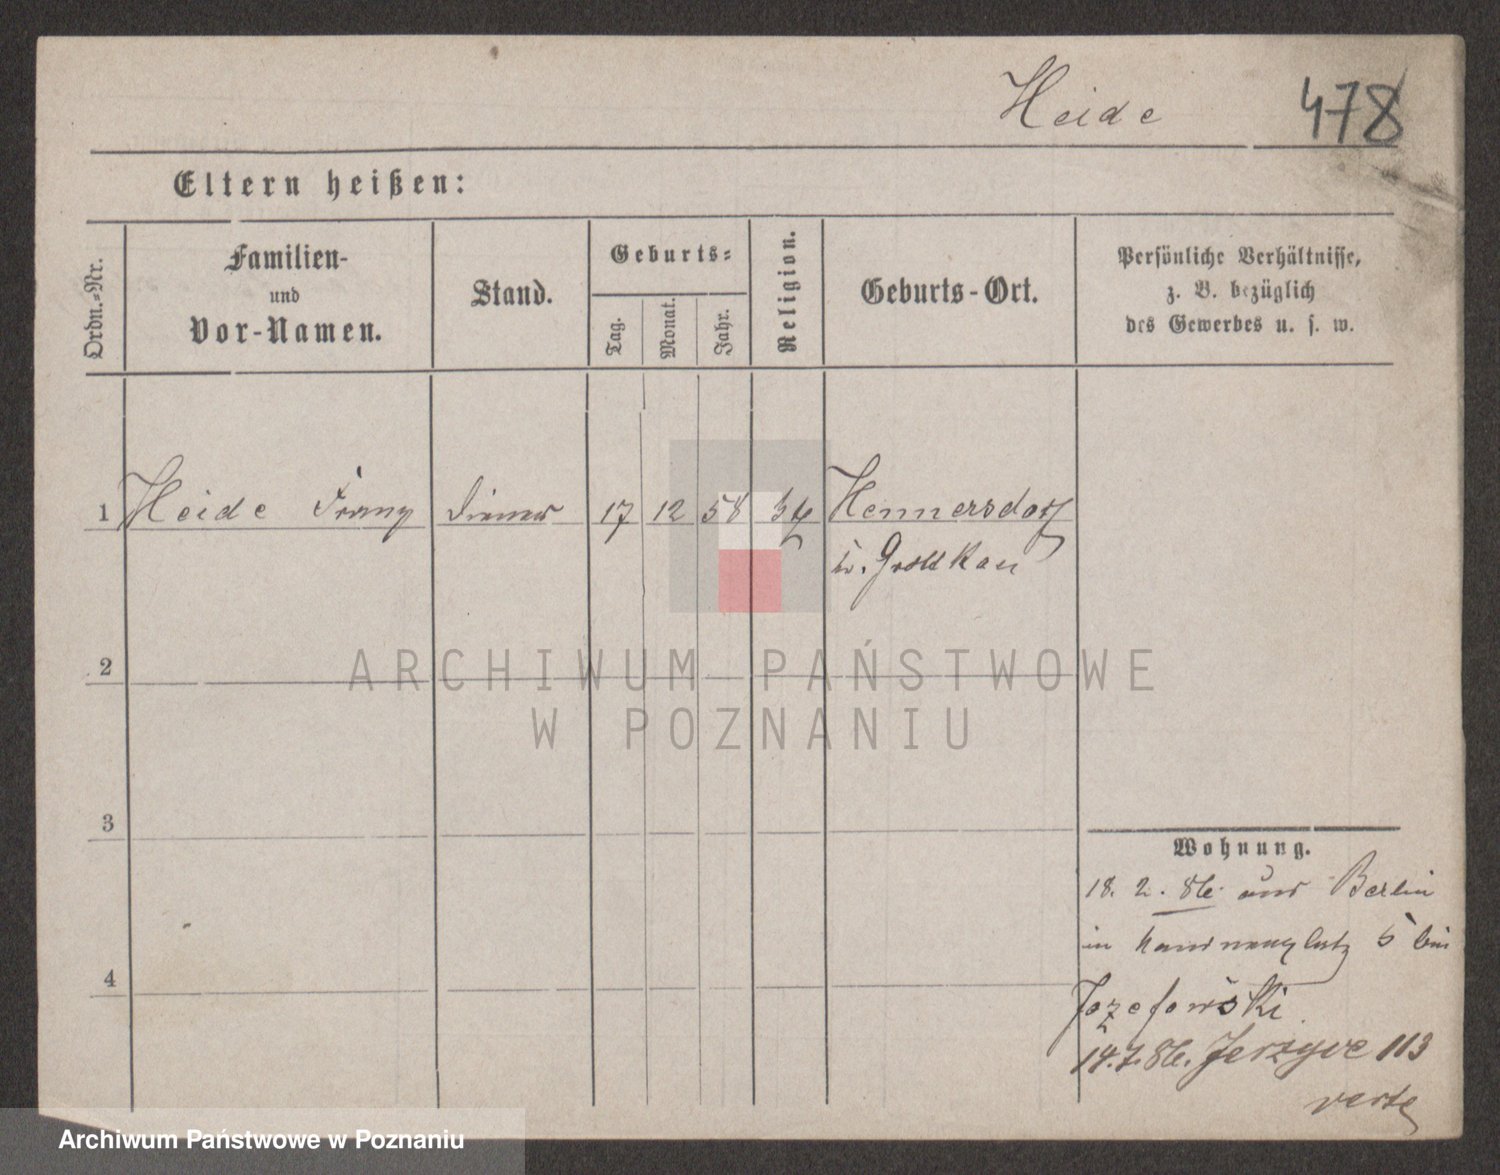 Heide 478
Eltern heißen:
Ordn.-Nr.
Familien-
und
Vor-Namen.
Stand.
Geburts-
Tag.
Monat.
Jahr.
Religion.
Geburts-Ort.
Persönliche Verhältnisse,
z. B. bezüglich
des Gewerbes u. s. w.
1 Heide Franz Diener 17 12 58 Hennersdorf
Kr. Grottkau
2
ARCHIWUM PAŃSTWOWE
W POZNANIU
3
Wohnung.
18. 2. 86. aus Berlin
in 5 bei
4
Jozefowski
14.7.86. Jerzyce 113
verte
Archiwum Państwowe w Poznaniu